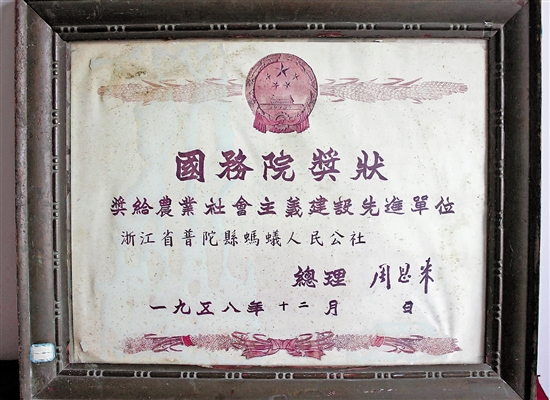 國務院獎狀
獎給農業社會主義建設先進單位
浙江省普陀縣螞蟻人民公社
總理 周恩来
一九五八年 十二月 日